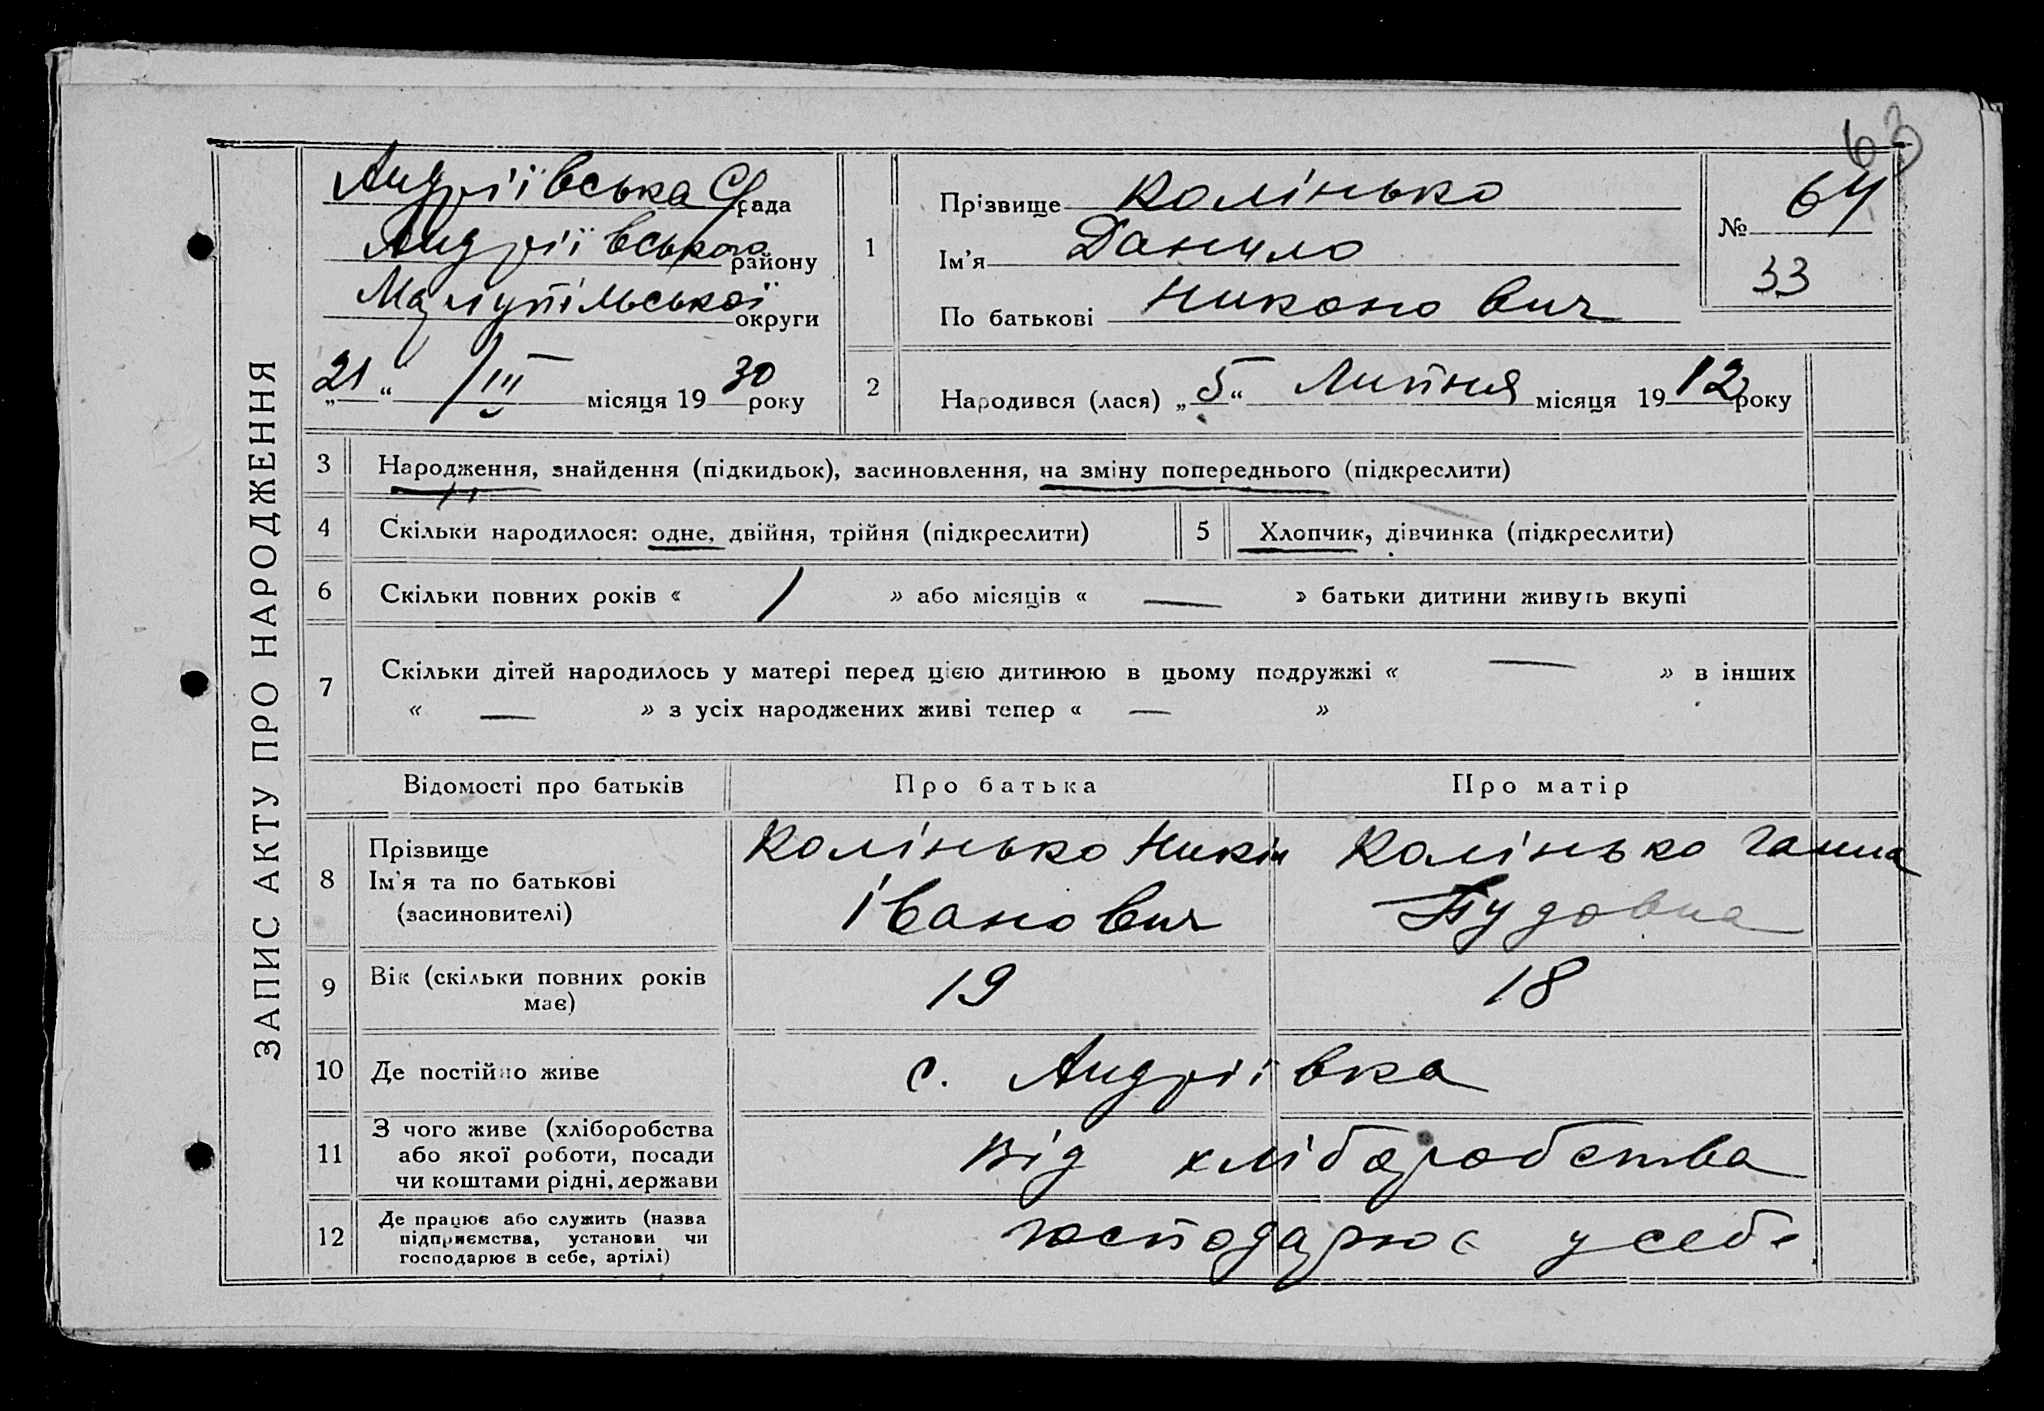 63
ЗАПИС АКТУ ПРО НАРОДЖЕННЯ
Андріївська С/рада
Андріївського району
Маріупільської округи
„21“ /III місяця 1930 року
1
Прізвище Колінько
Ім’я Данило
По батьковіНиконович
№ 64
33
2
Народився (лася) „5“ Липня місяця 1912 року
3 Народження, знайдення (підкидьок), засиновлення, на зміну попереднього (підкреслити)
4 Скільки народилося: одне, двійня, трійня (підкреслити) 5 Хлопчик, дівчинка (підкреслити)
6 Скільки повних років « 1 » або місяців « — » батьки дитини живуть вкупі
7 Скільки дітей народилось у матері перед цією дитиною в цьому подружжі « — » в інших
« — » з усіх народжених живі тепер « — »
Відомості про батьків Про батька Про матір
8 Прізвище
Ім’я та по батькові
(засиновителі)
Колінько Никін
Іванович
Колінько Ганна
Пудовна
9 Вік (скільки повних років
має)
19 18
10 Де постійно живе с. Андріївка
11 З чого живе (хліборобства
або якої роботи, посади
чи коштами рідні, держави
від хліборобства
12 Де працює або служить (назва
підприємства, установи чи
господарює в себе, артілі)
господарює у себе